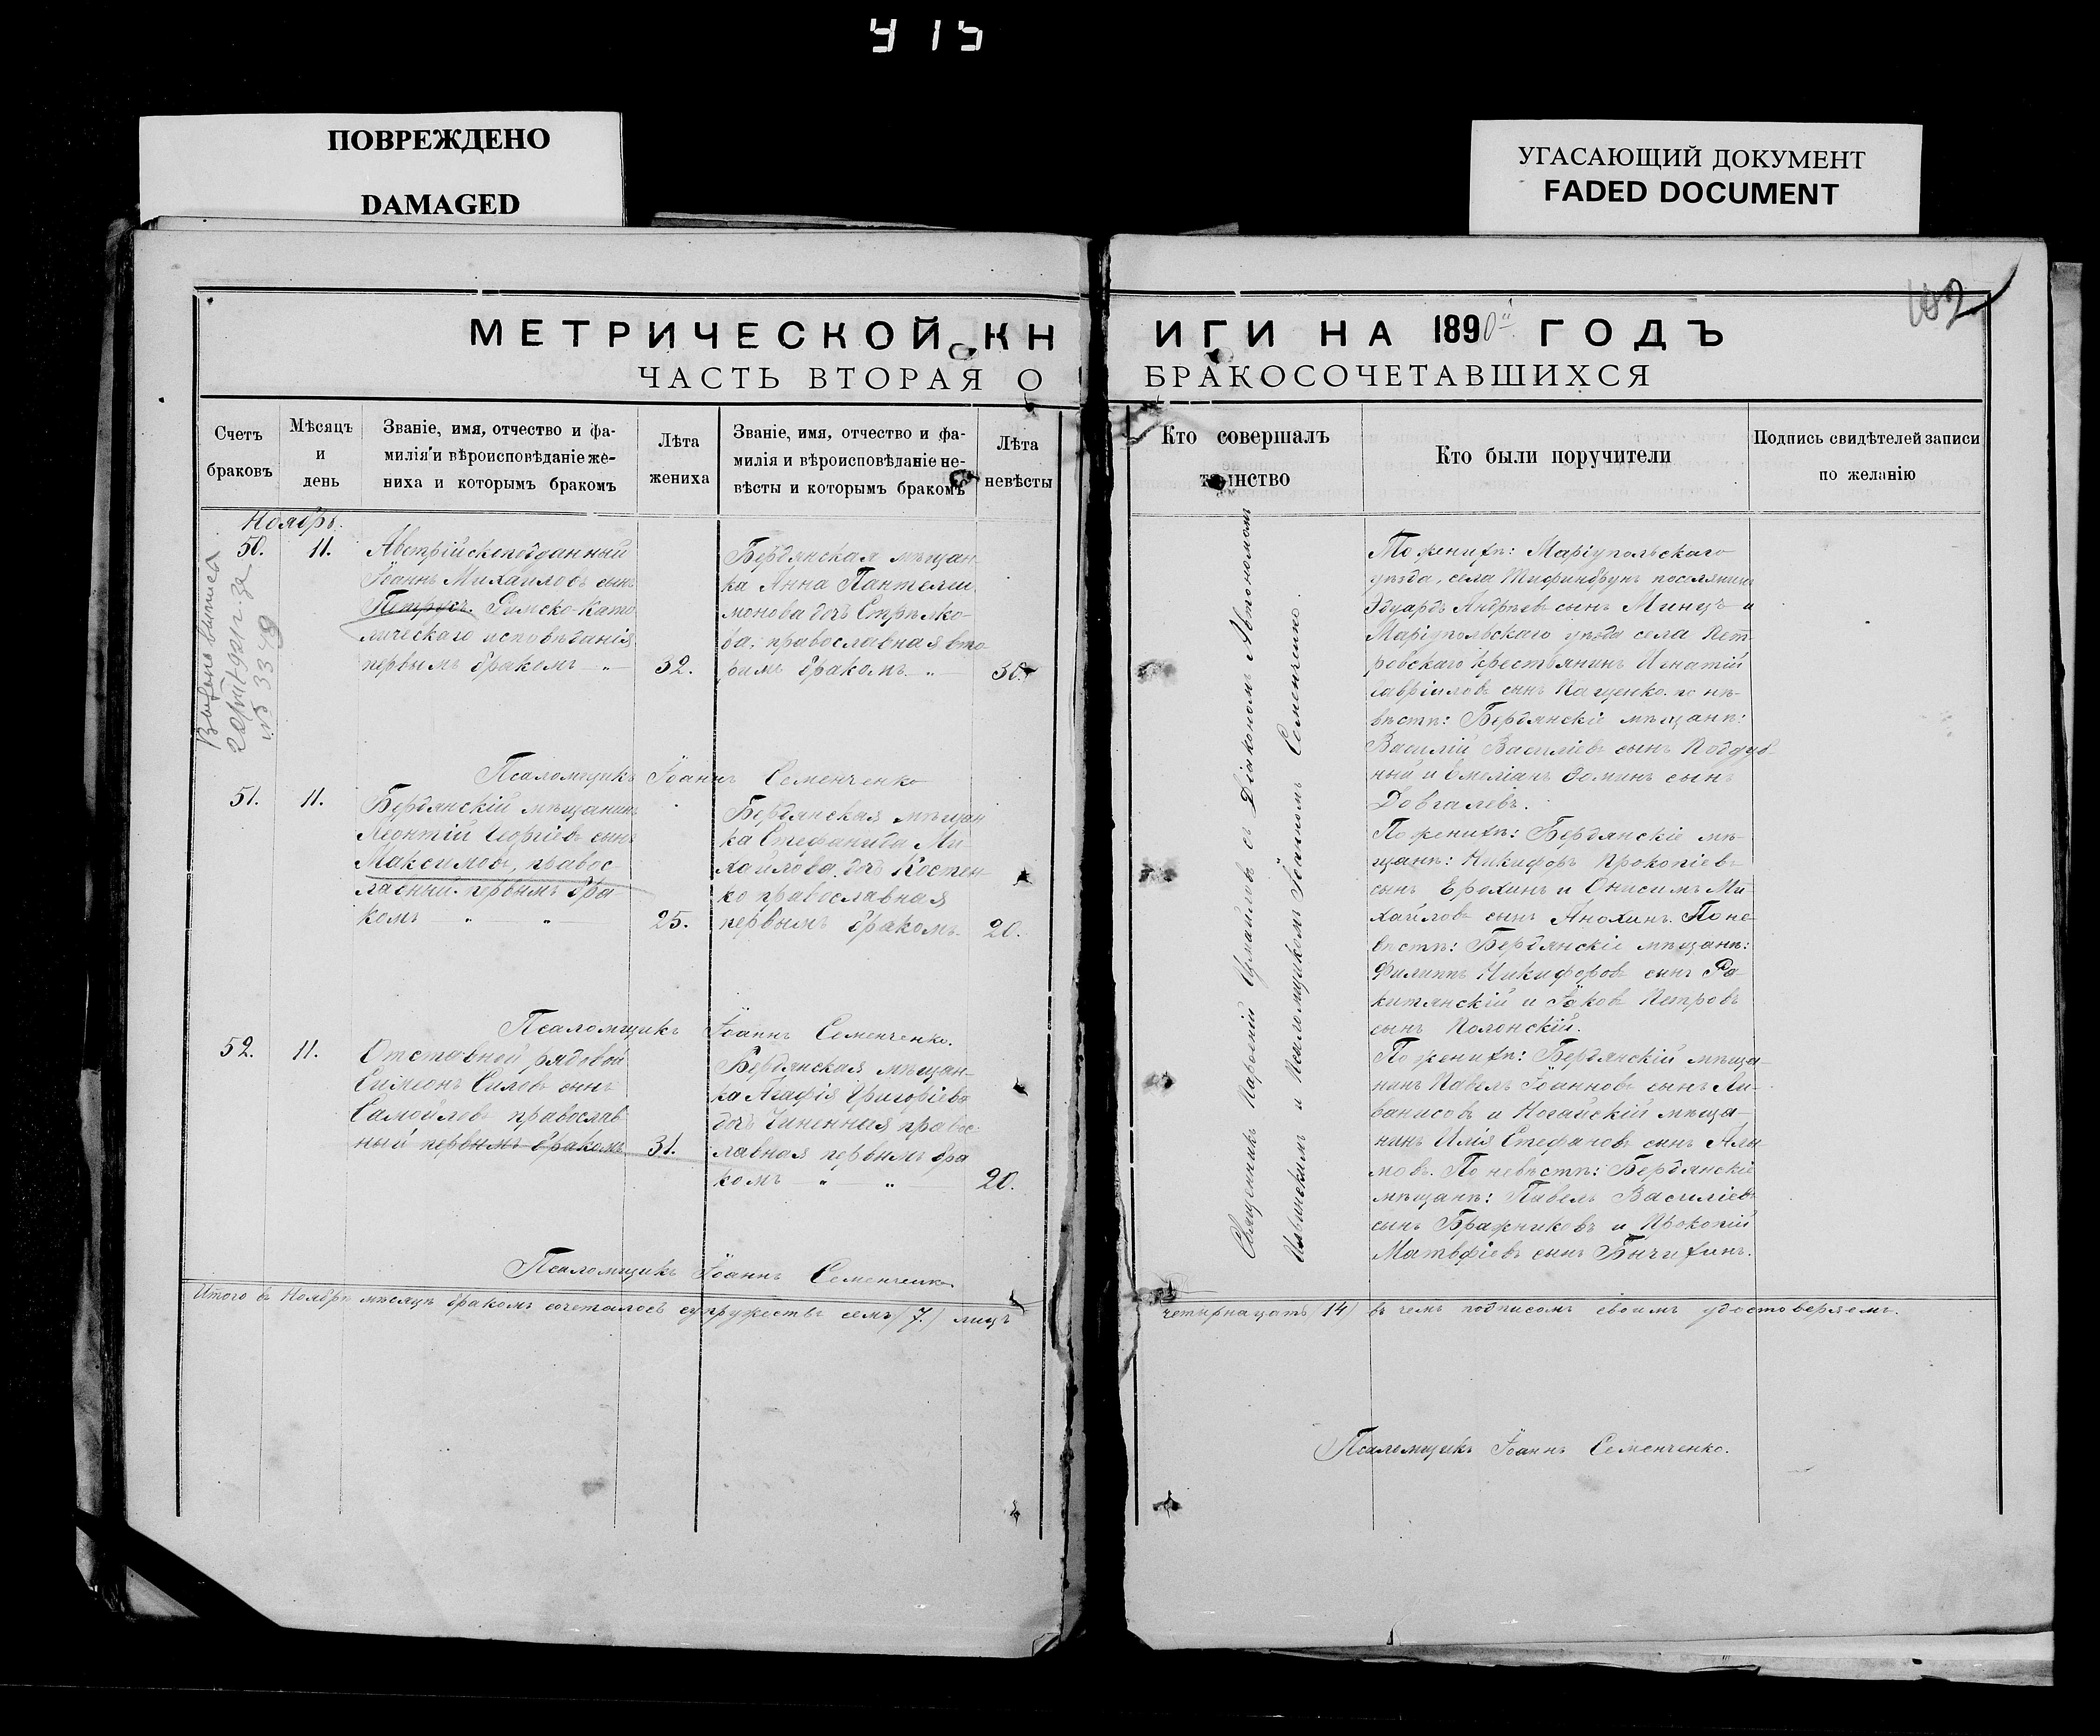 415
ПОВРЕЖДЕНО
DAMAGED
УГАСАЮЩИЙ ДОКУМЕНТ
FADED DOCUMENT
102
МЕТРИЧЕСКОЙ КНИГИ НА 1890й ГОДЪ
ЧАСТЬ ВТОРАЯ О БРАКОСОЧЕТАВШИХСЯ
Счетъ
браковъ
Мѣсяцъ
и
день
Званіе, имя, отчество и фа-
милія и вѣроисповѣданіе же-
ниха и которымъ бракомъ
Лѣта
жениха
Званіе, имя, отчество и фа-
милія и вѣроисповѣданіе не-
вѣсты и которымъ бракомъ
Лѣта
невѣсты
Кто совершалъ
таинство
Кто были поручители
Подпись свидѣтелей записи
по желанію
Ноябрь.
50.
11.
Австрійскоподданный
Іоаннъ Михаиловъ сынъ
Петрусъ. Римско-като
лическаго исповѣданія
первымъ бракомъ
32.
Бердянская мѣщан-
ка Анна Пантелеи
монова дочь Стрѣлко-
ва, православная вто
рымъ бракомъ
30.
№ 3348
По женихѣ: Маріупольскаго
уѣзда, села поселянинъ
Эдуардъ Андреевъ сынъ Минцъ и
Маріупольскаго уѣзда села Пет-
ровскаго крестьянинъ Игнатій
Гавріиловъ сынъ Кащенко. по не-
вѣстѣ: Бердянскіе мѣщане:
Василій Василіевъ сынъ Поддуб-
ный и Емеліанъ Ѳоминъ сынъ
Довгалевъ.
Псаломщикъ Іоаннъ Семенченко
51.
11.
Бердянскій мѣщанинъ
Леонтій Георгіевъ сынъ
Максимовъ, правос-
лавный первымъ бра-
комъ
25.
Бердянская мѣщан
ка Стефанида Ми-
хайлова дочь Костен-
ко православная
первымъ бракомъ
20.
По женихѣ: Бердянскіе мѣ-
щане: Никифоръ Прокопіевъ
сынъ Ерохинъ и Онисимъ Ми-
хайловъ сынъ Анохинъ. По не-
вѣстѣ: Бердянскіе мѣщане:
Филиппъ Никифоровъ сынъ Ра-
китянскій и Іаковъ Петровъ
сынъ Полонскій.
Псаломщикъ Іоаннъ Семенченко.
52.
11.
Отставной рядовой
Симеонъ Силевъ сынъ
Самойловъ православ
ный первымъ бракомъ
31.
Бердянская мѣщан-
ка Агафія Григоріева
дочь правос-
лавная первымъ бра
комъ
20.
По женихѣ: Бердянскій мѣща-
нинъ Павелъ Іоанновъ сынъ Ли-
ванисовъ и Ногайскій мѣща-
нинъ Илія Стефановъ сынъ Али-
мовъ. По невѣстѣ: Бердянскіе
мѣщане: Павелъ Василіевъ
сынъ Бражниковъ и Прокопій
Матвѣевъ сынъ Бычихинъ.
Псаломщикъ Іоаннъ Семенченко
Священникъ съ Діакономъ Автономомъ
и Псаломщикомъ Іоанномъ Семенченко.
Итого въ Ноябрѣ мѣсяцѣ бракомъ сочеталось супружествъ семь (7.) лицъ четырнадцать (14) въ чемъ подписомъ своимъ удостовѣряемъ.
Псаломщикъ Іоаннъ Семенченко.